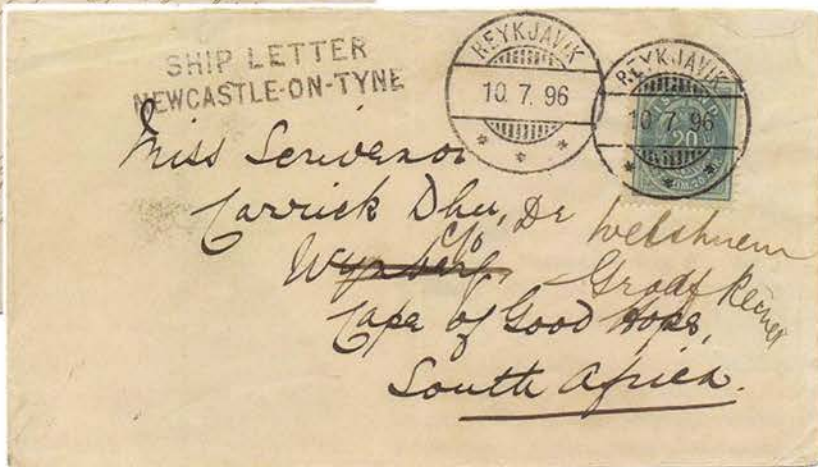 SHIP LETTER
NEWCASTLE-ON-TYNE
REYKJAVIK
10.7.96
REYKJAVIK
10.7.96
20
Miss Scrivenor
Carrick Dhu, De
c/o
Wynberg,
Cape of Good Hope,
South Africa.